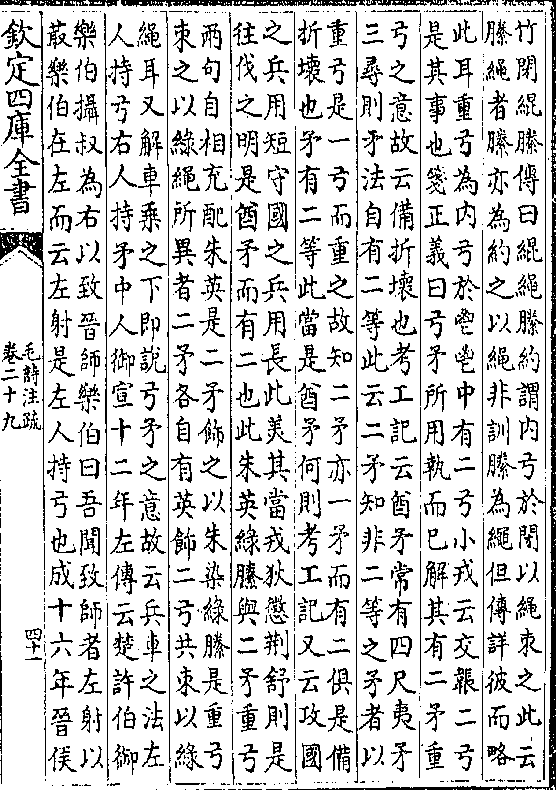 竹閉緄縢傳曰緄繩縢約謂内弓於閉以繩束之此云
縢繩者縢亦為約之以繩非訓縢為繩但傳詳彼而略
此耳重弓為内弓於鬯鬯中有二弓小戎云交韔二弓
是其事也箋正義曰弓矛所用執而已解其有二矛重
弓之意故云備折壞也考工記云酋矛常有四尺夷矛
三尋則矛法自有二等此云二矛知非二等之矛者以
重弓是一弓而重之故知二矛亦一矛而有二俱是備
折壞也矛有二等此當是酋矛何則考工記又云攻國
之兵用短守國之兵用長此美其當戎狄懲荆舒則是
往伐之明是酋矛而有二也此朱英綠縢與二矛重弓
兩句自相充配朱英是二矛飾之以朱染綠縢是重弓
束之以綠繩所異者二矛各自有英飾二弓共束以綠
繩耳又解車乘之下即說弓矛之意故云兵車之法左
人持弓右人持矛中人御宣十二年左傳云楚許伯御
樂伯攝叔為右以致晉師樂伯曰吾聞致師者左射以
菆樂伯在左而云左射是左人持弓也成十六年晉侯
欽定四庫全書
毛詩注疏
卷二十九
四十一